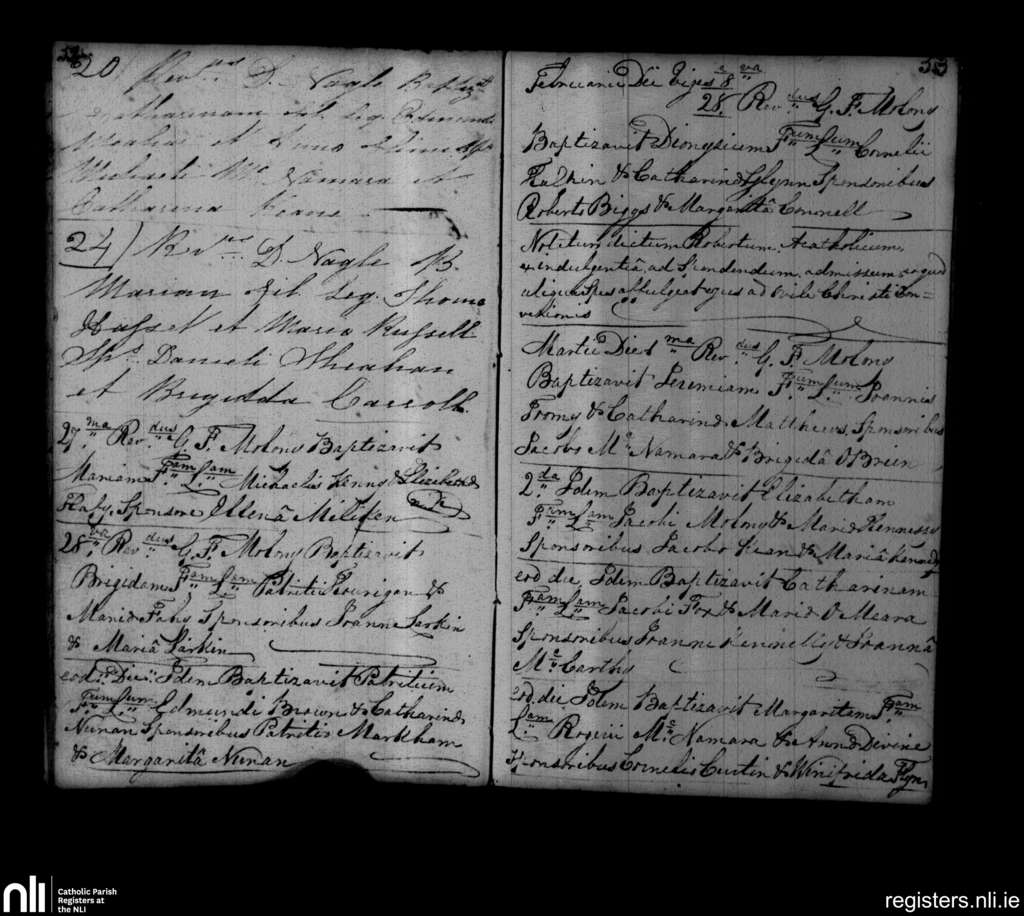 54
20) Rev. D. Nagle Baptizt
Catharinam fil. leg. Edmundi
et Anna Sps
Michaeli Mc Namara et
Catharina Keane
24) Rev. D. Nagle B.
Mariam fil. leg. Thoma
et Maria Russell
Sps. Danieli Sheahan
et Brigidda Carroll
27.ma Rev.dus G. F. Molony Baptizavit
Mariam F.am L.am Michaelis Kenny & Elizabetha
Sponsore Ellenâ
28.va Rev.dus G. F. Molony Baptizavit
Brigidam F.am L.am Patritii &
Mariæ Fahy Sponsoribus Joanne Larkin
& Mariâ Larkin
eod. Die. Idem Baptizavit Patritium
F.um L.um Edmundi Brown & Catharinæ
Nunan Sponsoribus Patritio Markham
& Margaritâ Nunan
55
Februarii Die Viges 8va
28. Rev.dus G. F. Molony
Baptizavit Dionysium F.um L.um Cornelii
& Catharinæ Glynn Sponsoribus
Roberto Biggs & Margaritâ Connell
Notetur dictum Robertum Acatholicum,
ex indulgentiâ, ad Spondendum, admissum, eo quod
aliqua Spes affulgeat ejus ad ovile Christi Con=
versionis
Martii Die 1.ma Rev.dus G. F. Molony
Baptizavit Jeremiam F.um L.um Joannis
& Catharinæ Matthews, Sponsoribus
Jacobo Mc Namara & Brigidâ O Brien
2.da Idem Baptizavit Elizabetham
F.am L.am Jacobi Molony & Mariæ Hennessy
Sponsoribus Jacobo Kean & Mariâ Kennedy
eod die, Idem Baptizavit Catharinam
F.am L.am Jacobi Fox & Mariæ O Meara
Sponsoribus Joanne & Joannâ
Mc Carthy
eod. die Idem Baptizavit Margaritam F.am
L.am Rogerii Mc Namara & Annæ Devine
Sponsoribus Cornelio Curtin & Winifrida Flyn,
nli
Catholic Parish
Registers at
the NLI
registers.nli.ie